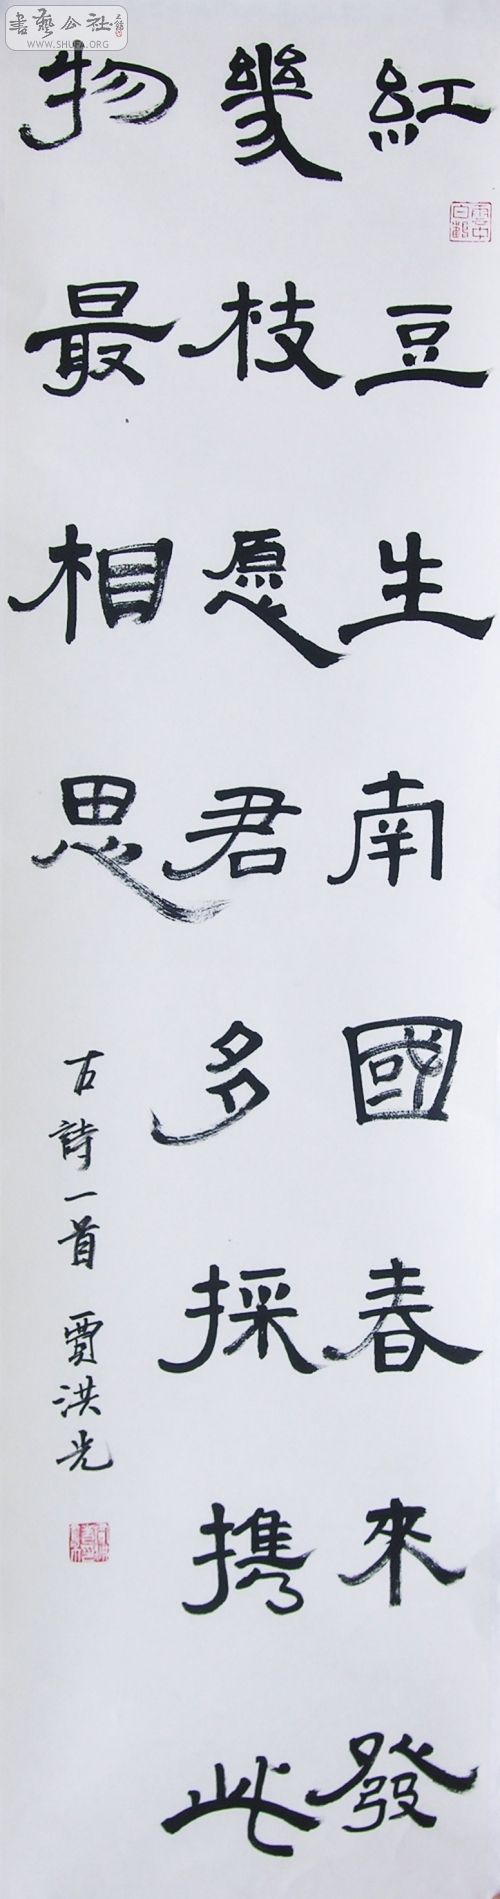 紅豆生南國春來發
幾枝愿君多採携此
物最相思
古詩一首 賈洪光
雲中白鶴
書藝公社
WWW.SHUFA.ORG